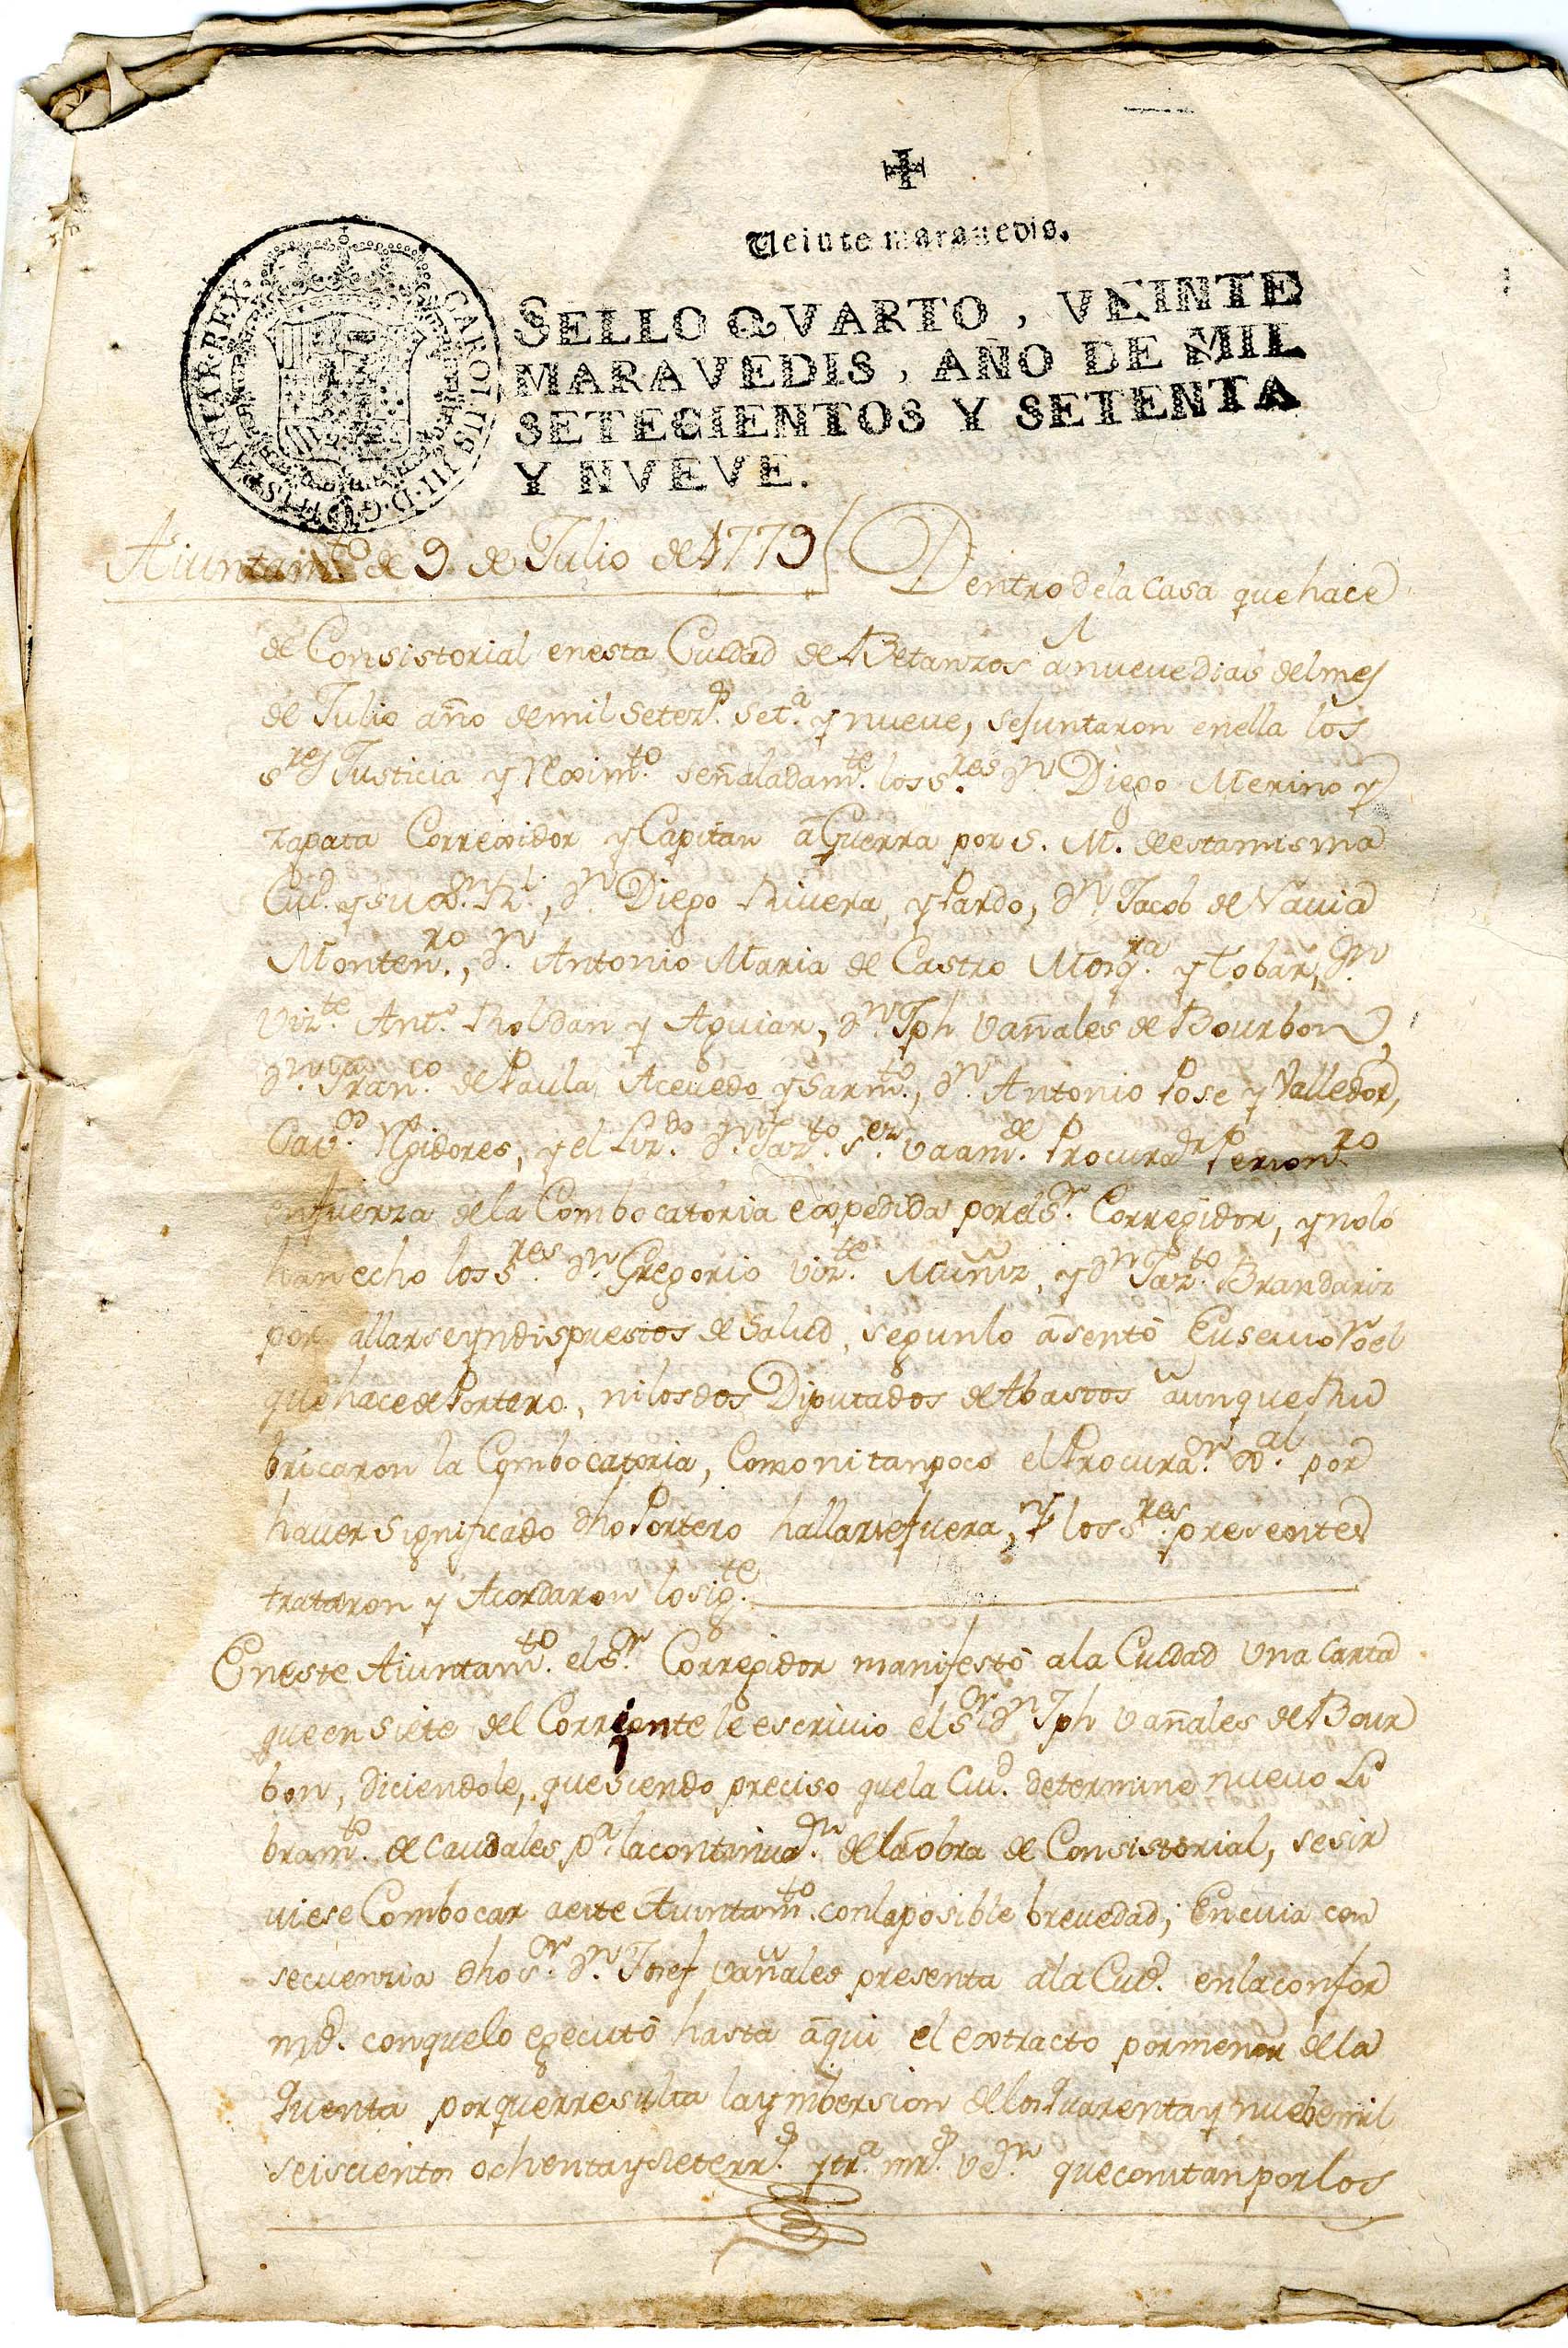 Veinte maravedis.
SELLO QVARTO, VEINTE
MARAVEDIS, AÑO DE MIL
SETECIENTOS Y SETENTA
Y NVEVE.
CAROLUS III D G HISPANIAR REX
Aiuntamto de 9 de Julio de 1779
Dentro de la casa que hace
de Consistorial en esta Ciudad de Betanzos a nueve dias del mes
de Julio año de mil setezs. seta. y nueve, se juntaron en ella los
sres Justicia y Reximto. señaladamte. los sres. Dn. Diego Merino y
zapata Correxidor y Capitan a Guerra por S. M. de esta misma
Ciud. y su Rl., Dn. Diego Rivera y Pardo, Dn. Jacob de Navia
Montenro., Dn. Antonio Maria de Castro y Tobar, Dn.
Vizte. Anto. Roldan y Aguiar, Dn. Jph Vañales de Bourbon,
Dn. Franco. de Paula Acevedo y Sarmto., Dn. Antonio Pose y Valledor,
Cavos. Rexidores, y el Lizdo. Dn. Jazto. Procurador Personro
en fuerza de la Combocatoria expedida por el Sr. Corregidor, y no lo
han echo los sres. Dn. Gregorio Vizte. Muñiz, y Dn. Jazto. Brandariz
por allarse yndispuestos de Salud, segun lo asento Euserio
que hace de Portero, ni los dos Diputados de Abastos aunque Ru
bricaron la Combocatoria, Como ni tanpoco el Procurar. Gal. por
haver significado dho Portero hallarse fuera, y los sres. presentes
trataron y Acordaron lo sigte.
En este Aiuntamto. el Sr. Corregidor manifesto a la Ciudad Una carta
que en siete del Corriente le escrivio el Sr. Dn. Jph Vañales de Bour
bon, diciendole, que siendo preciso que la Ciud. determine nuevo Li
bramto. de caudales pa. la continuan. de la obra de Consistorial, se sir
viese Combocar a este Aiuntamto. con la posible brevedad; En cuia con
secuenzia dho Sr. Dn. Josef Vañales presenta a la Ciud. en la confor
md. con que lo egecutó hasta aqui el extracto por menor de la
quenta por que rresulta la ymbersion de los quarenta y nuebe mil
seiscientos ochenta y siete rrs. y tra. mrs. von que constan por los